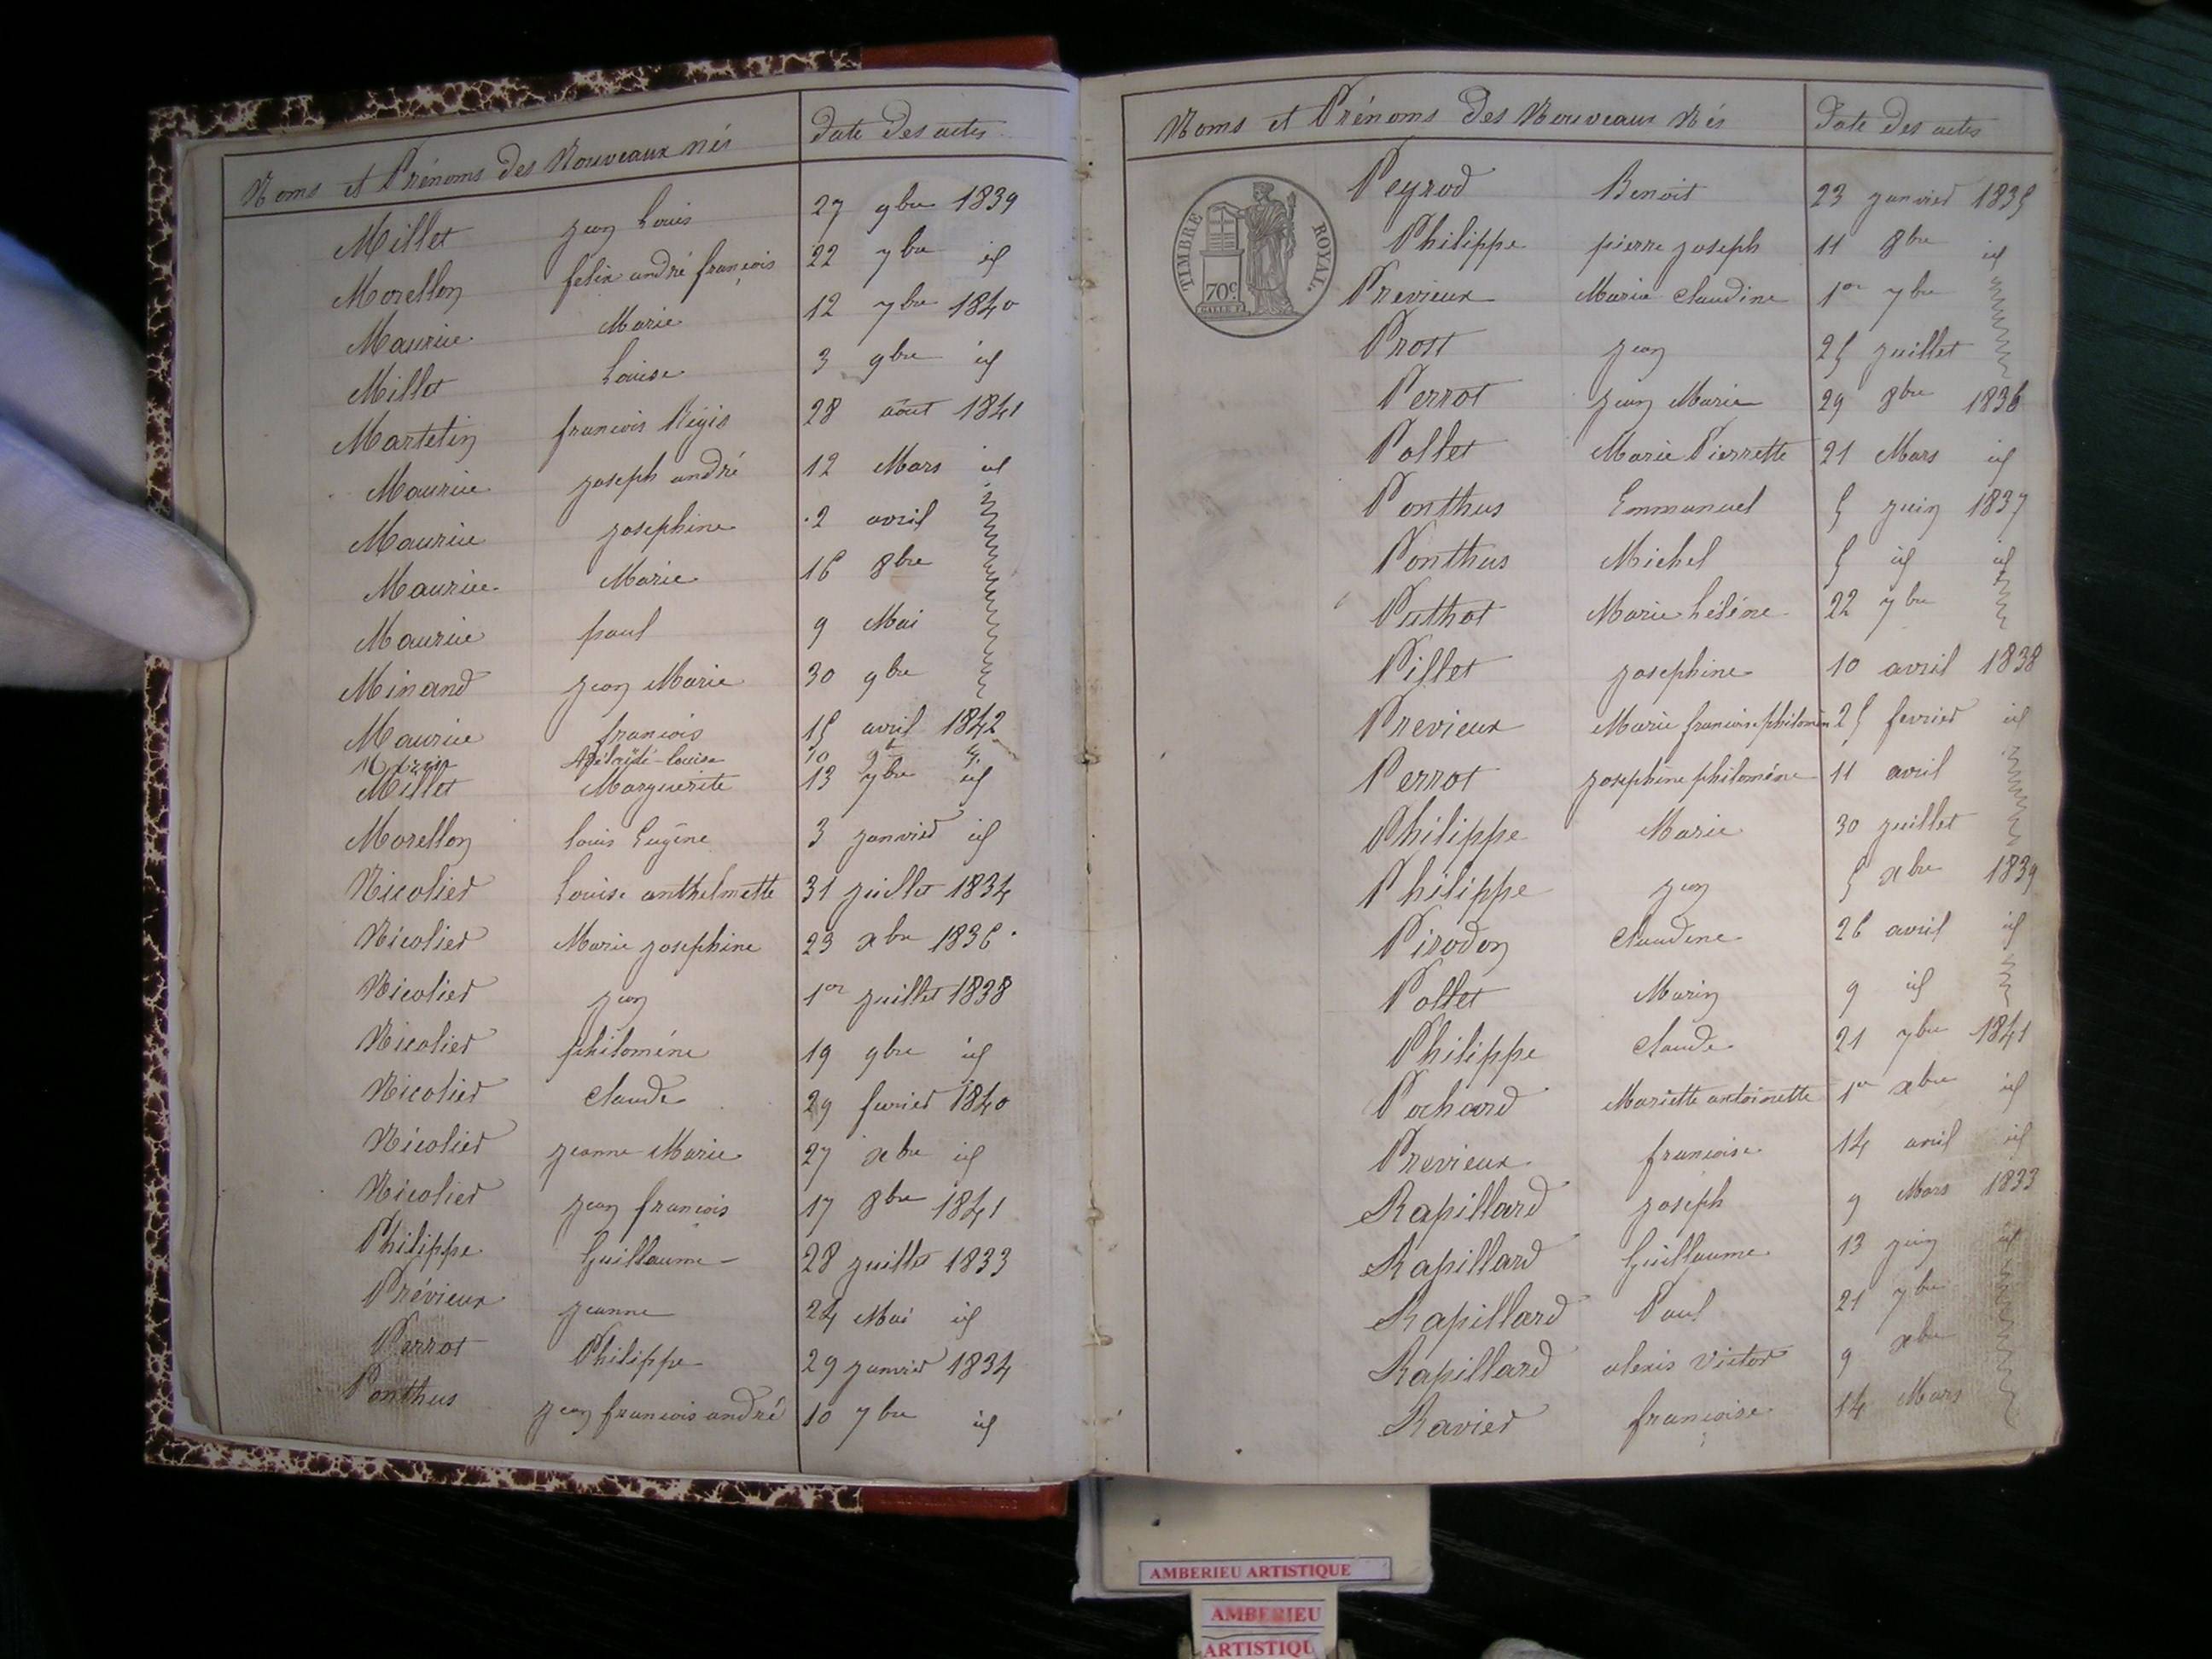 Noms et Prénoms des Nouveaux nés Date des actes
Millet jean Louis 27 9bre 1839
Morellon felix andré françois 22 7bre id
Maurice Marie 12 7bre 1840
Millet Louise 3 9bre id
Martelin francois Régis 28 aout 1841
Maurice joseph andré 12 Mars id
Maurice josephine 2 avril
Maurice Marie 16 8bre
Maurice paul 9 Mai
Minand jean Marie 30 9bre
Maurice francois 15 avril 1842
Adélaïde-louise 10
Millet Marguerite 13 7bre id
Morellon louis Eugène 3 janvier id
Nicolier Louise anthelmette 31 juillet 1834
Nicolier Marie josephine 23 xbre 1836
Nicolier jean 1er juillet 1838
Nicolier philoméne 19 9bre id
Nicolier Claude 29 fevrier 1840
Nicolier jeanne Marie 27 xbre id
Nicolier jean francois 17 8bre 1841
Philippe Guillaume 28 juillet 1833
Prévieux jeanne 24 Mai id
Perrot Philippe 29 janvier 1834
Ponthus jean francois andré 10 7bre id
Noms et Prénoms des Nouveaux Nés Date des actes
TIMBRE ROYAL.
70c
Peyrod Benoit 23 janvier 1835
Philippe pierre joseph 11 8bre id
Previeux Marie Claudine 1er 7bre
Prost jean 25 juillet
Perrot jean Marie 29 8bre 1836
Pollet Marie Pierrette 21 Mars id
Ponthus Emmanuel 5 juin 1837
Ponthus Michel 5 id id
Puthot Marie héléne 22 7bre
Pillet josephine 10 avril 1838
Previeux Marie francoise philomén 25 fevrier id
Perrot josephine philoméne 11 avril
Philippe Marie 30 juillet
Philippe jean 5 xbre 1839
Pirodon Claudine 26 avril id
Pollet Marin 9 id
Philippe Claude 21 7bre 1841
Pochard Mariette antoinette 1er xbre id
Previeux francoise 14 avril id
Rapillard joseph 9 Mars 1833
Rapillard Guillaume 13 juin id
Rapillard Paul 21 7bre
Rapillard alexis Victor 9 xbre
Ravier françoise 14 Mars
AMBERIEU ARTISTIQUE
AMBERIEU
ARTISTIQU